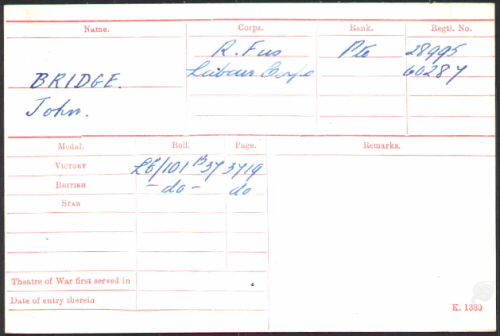 Name. Corps. Rank. Regtl. No.
R. Fus Pte 28995
BRIDGE. Labour Corps 60287
John.
Medal. Roll. Page. Remarks.
VICTORY LC/101 B37 3719
BRITISH - do - do
STAR
Theatre of War first served in
Date of entry therein
K. 1380